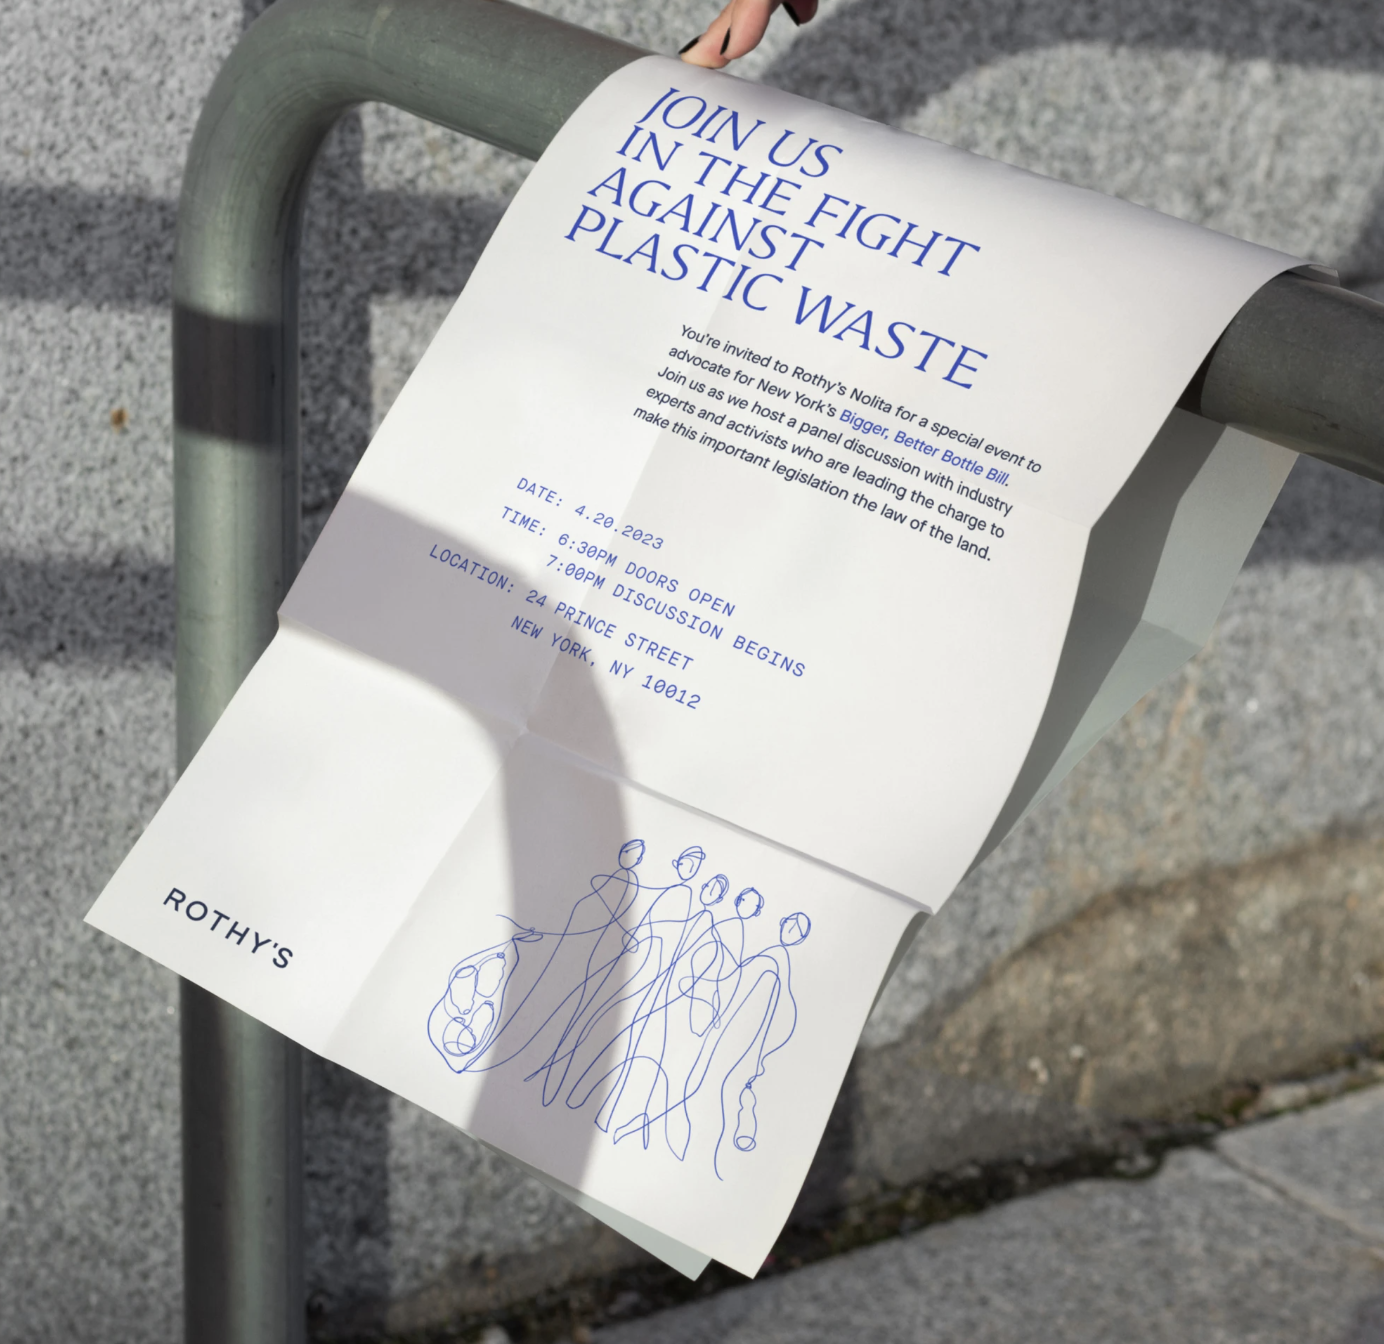 JOIN US
IN THE FIGHT
AGAINST
PLASTIC WASTE
You're invited to Rothy's Nolita for a special event to
advocate for New York's Bigger, Better Bottle Bill.
Join us as we host a panel discussion with industry
experts and activists who are leading the charge to
make this important legislation the law of the land.
DATE: 4.20.2023
TIME: 6:30PM DOORS OPEN
7:00PM DISCUSSION BEGINS
LOCATION: 24 PRINCE STREET
NEW YORK, NY 10012
ROTHY'S